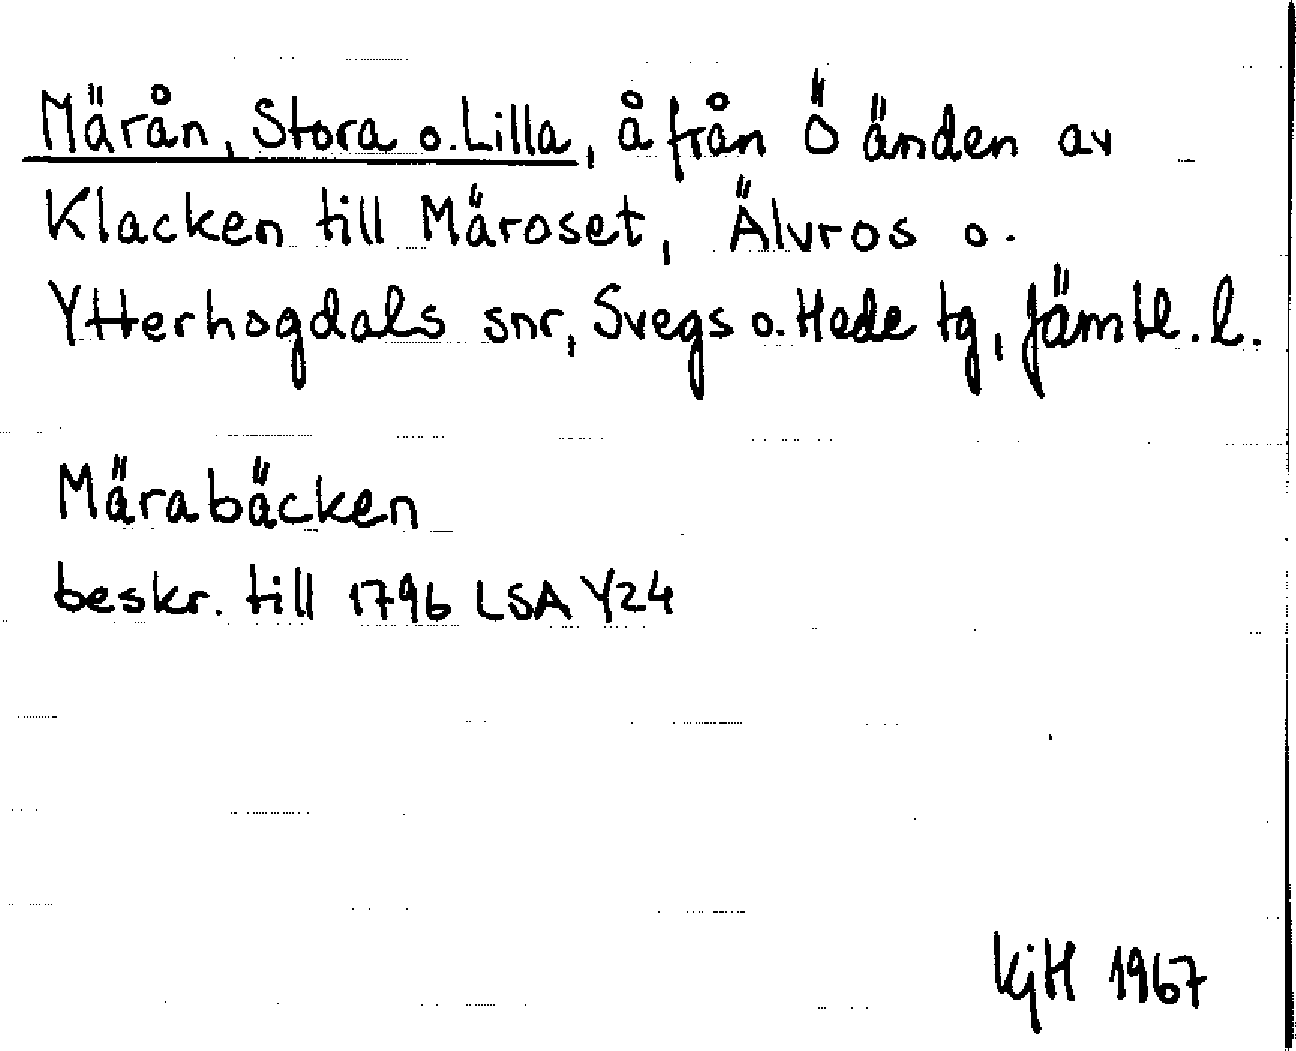 Märån, Stora o. Lilla, å från Ö änden av
Klacken till Märoset, Älvros o.
Ytterhogdals snr, Svegs o. Hede tg, Jämtl. l.
Märabäcken
beskr. till 1796 LSA Y24
KjH 1967